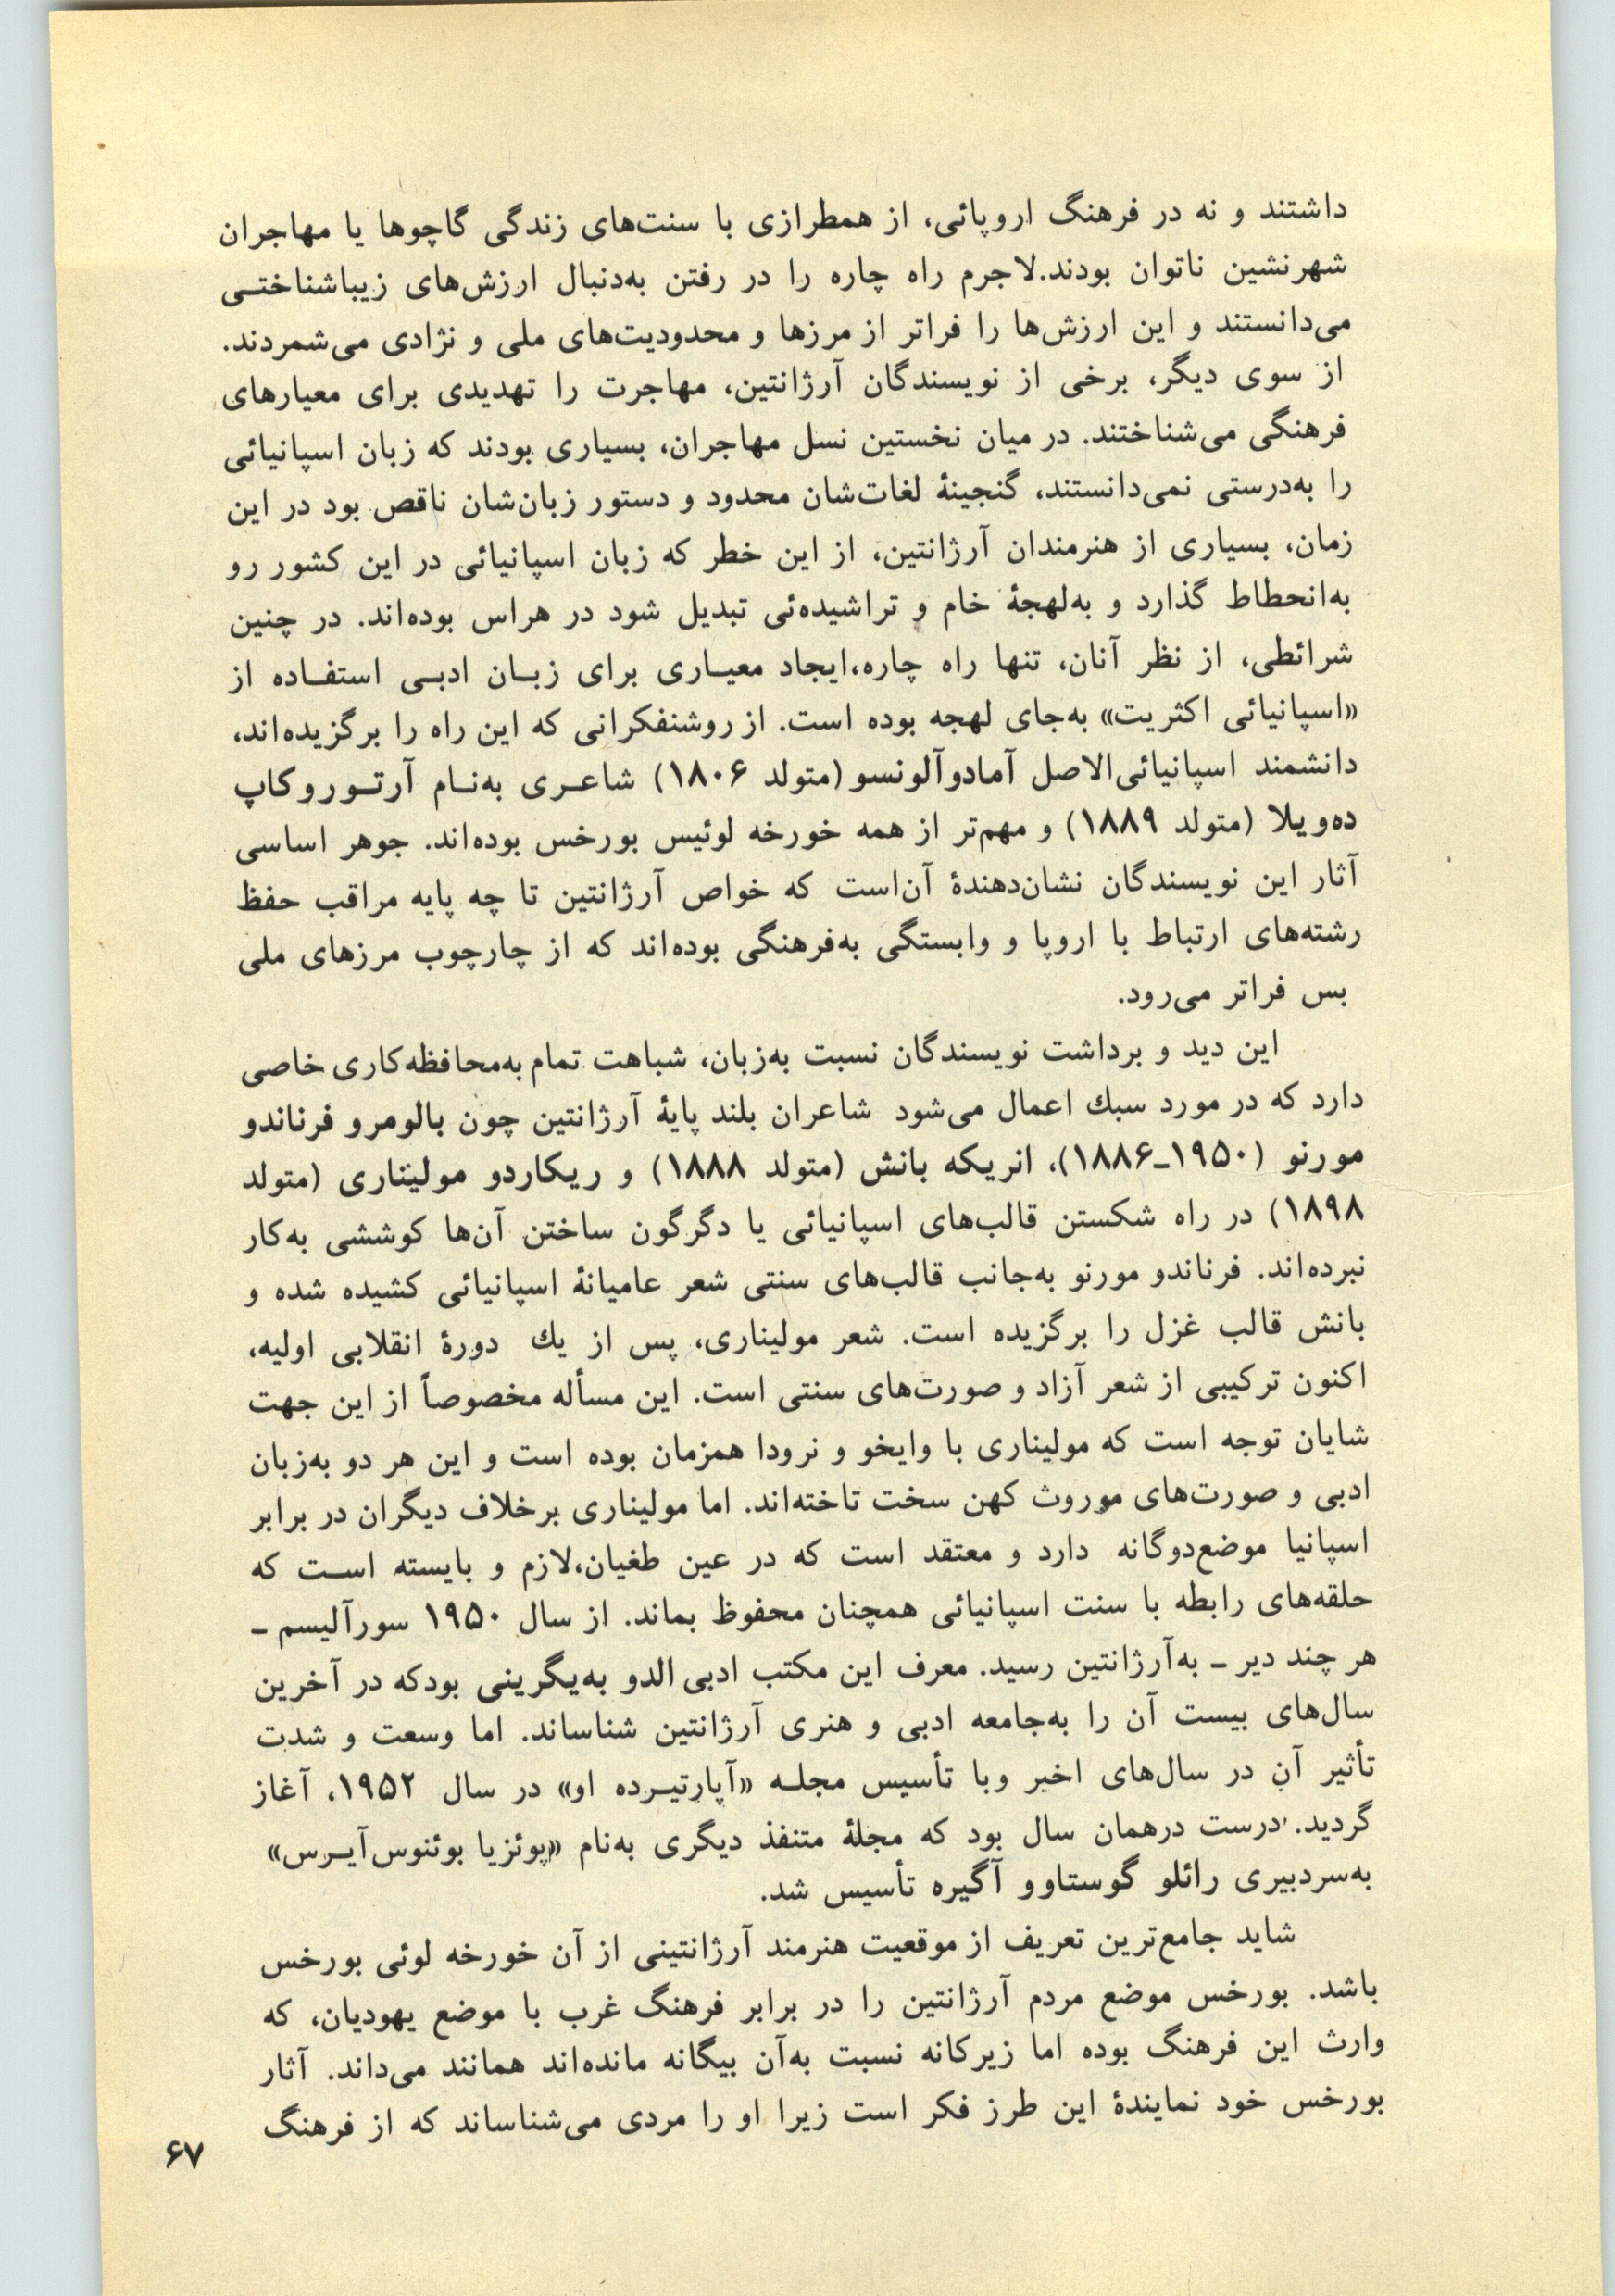 داشتند و نه در فرهنگ اروپائی، از همطرازی با سنت‌های زندگی گاچوها یا مهاجران
شهرنشین ناتوان بودند.لاجرم راه چاره را در رفتن به‌دنبال ارزش‌های زیباشناختـی
می‌دانستند و این ارزش‌ها را فراتر از مرزها و محدودیت‌های ملی و نژادی می‌شمردند.
از سوی دیگر، برخی از نویسندگان آرژانتین، مهاجرت را تهدیدی برای معیارهای
فرهنگی می‌شناختند. در میان نخستین نسل مهاجران، بسیاری بودند که زبان اسپانیائی
را به‌درستی نمی‌دانستند، گنجینهٔ لغات‌شان محدود و دستور زبان‌شان ناقص بود در این
زمان، بسیاری از هنرمندان آرژانتین، از این خطر که زبان اسپانیائی در این کشور رو
به‌انحطاط گذارد و به‌لهجهٔ خام و تراشیده‌ئی تبدیل شود در هراس بوده‌اند. در چنین
شرائطی، از نظر آنان، تنها راه چاره،ایجاد معیـاری برای زبـان ادبـی استفـاده از
«اسپانیائی اکثریت» به‌جای لهجه بوده است. از روشنفکرانی که این راه را برگزیده‌اند،
دانشمند اسپانیائی‌الاصل آمادوآلونسو (متولد ۱۸۰۶) شاعـری به‌نـام آرتـوروکاپ
ده‌ویلا (متولد ۱۸۸۹) و مهم‌تر از همه خورخه لوئیس بورخس بوده‌اند. جوهر اساسی
آثار این نویسندگان نشان‌دهندهٔ آن‌است که خواص آرژانتین تا چه پایه مراقب حفظ
رشته‌های ارتباط با اروپا و وابستگی به‌فرهنگی بوده‌اند که از چارچوب مرزهای ملی
بس فراتر می‌رود.
این دید و برداشت نویسندگان نسبت به‌زبان، شباهت تمام به‌محافظه‌کاری خاصی
دارد که در مورد سبك اعمال می‌شود شاعران بلند پایهٔ آرژانتین چون بالومرو فرناندو
مورنو (۱۹۵۰ـ۱۸۸۶)، انریکه بانش (متولد ۱۸۸۸) و ریکاردو مولیناری (متولد
۱۸۹۸) در راه شکستن قالب‌های اسپانیائی یا دگرگون ساختن آن‌ها کوششی به‌کار
نبرده‌اند. فرناندو مورنو به‌جانب قالب‌های سنتی شعر عامیانهٔ اسپانیائی کشیده شده و
بانش قالب غزل را برگزیده است. شعر مولیناری، پس از یك دورهٔ انقلابی اولیه،
اکنون ترکیبی از شعر آزاد و صورت‌های سنتی است. این مسأله مخصوصاً از این جهت
شایان توجه است که مولیناری با وایخو و نرودا همزمان بوده است و این هر دو به‌زبان
ادبی و صورت‌های موروث کهن سخت تاخته‌اند. اما مولیناری برخلاف دیگران در برابر
اسپانیا موضع‌دوگانه دارد و معتقد است که در عین طغیان،لازم و بایسته اسـت که
حلقه‌های رابطه با سنت اسپانیائی همچنان محفوظ بماند. از سال ۱۹۵۰ سورآلیسم ـ
هر چند دیر ـ به‌آرژانتین رسید. معرف این مکتب ادبی الدو به‌یگرینی بودکه در آخرین
سال‌های بیست آن را به‌جامعه ادبی و هنری آرژانتین شناساند. اما وسعت و شدت
تأثیر آن در سال‌های اخیر وبا تأسیس مجلـه «آپارتیـرده او» در سال ۱۹۵۲، آغاز
گردید. درست درهمان سال بود که مجلهٔ متنفذ دیگری به‌نام «پوئزیا بوئنوس‌آیـرس»
به‌سردبیری رائلو گوستاوو آگیره تأسیس شد.
شاید جامع‌ترین تعریف از موقعیت هنرمند آرژانتینی از آن خورخه لوئی بورخس
باشد. بورخس موضع مردم آرژانتین را در برابر فرهنگ غرب با موضع یهودیان، که
وارث این فرهنگ بوده اما زیرکانه نسبت به‌آن بیگانه مانده‌اند همانند می‌داند. آثار
بورخس خود نمایندهٔ این طرز فکر است زیرا او را مردی می‌شناساند که از فرهنگ
۶۷